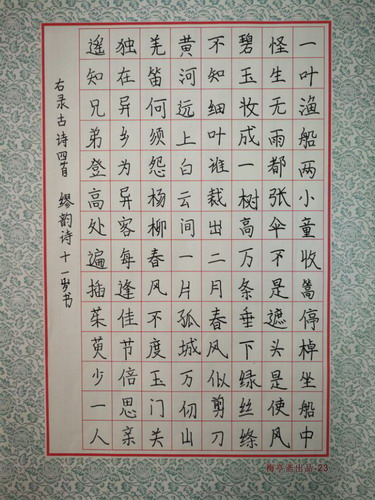 一叶渔船两小童收篙停棹坐船中
怪生无雨都张伞不是遮头是使风
碧玉妆成一树高万条垂下绿丝绦
不知细叶谁裁出二月春风似剪刀
黄河远上白云间一片孤城万仞山
羌笛何须怨杨柳春风不度玉门关
独在异乡为异客每逢佳节倍思亲
遥知兄弟登高处遍插茱萸少一人
右录古诗四首 缪韵诗十一岁书
出品-23